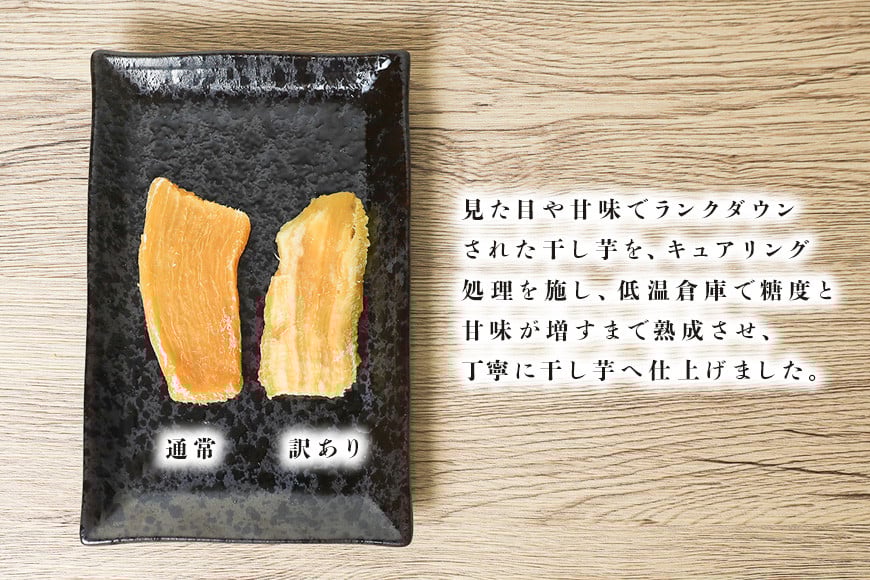 見た目や甘味でランクダウン
された干し芋を、キュアリング
処理を施し、低温倉庫で糖度と
甘味が増すまで熟成させ、
丁寧に干し芋へ仕上げました。
通常
訳あり